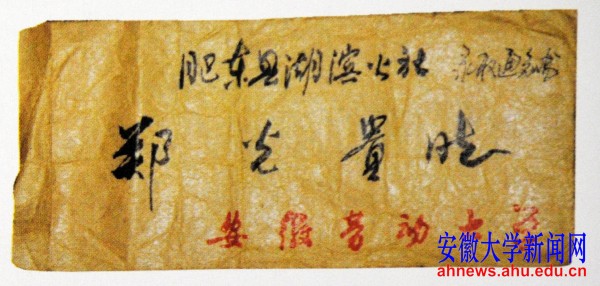 肥东县湖滨公社 录取通知书
郑光贵收
安徽劳动大学
安徽大学新闻网
ahnews.ahu.edu.cn